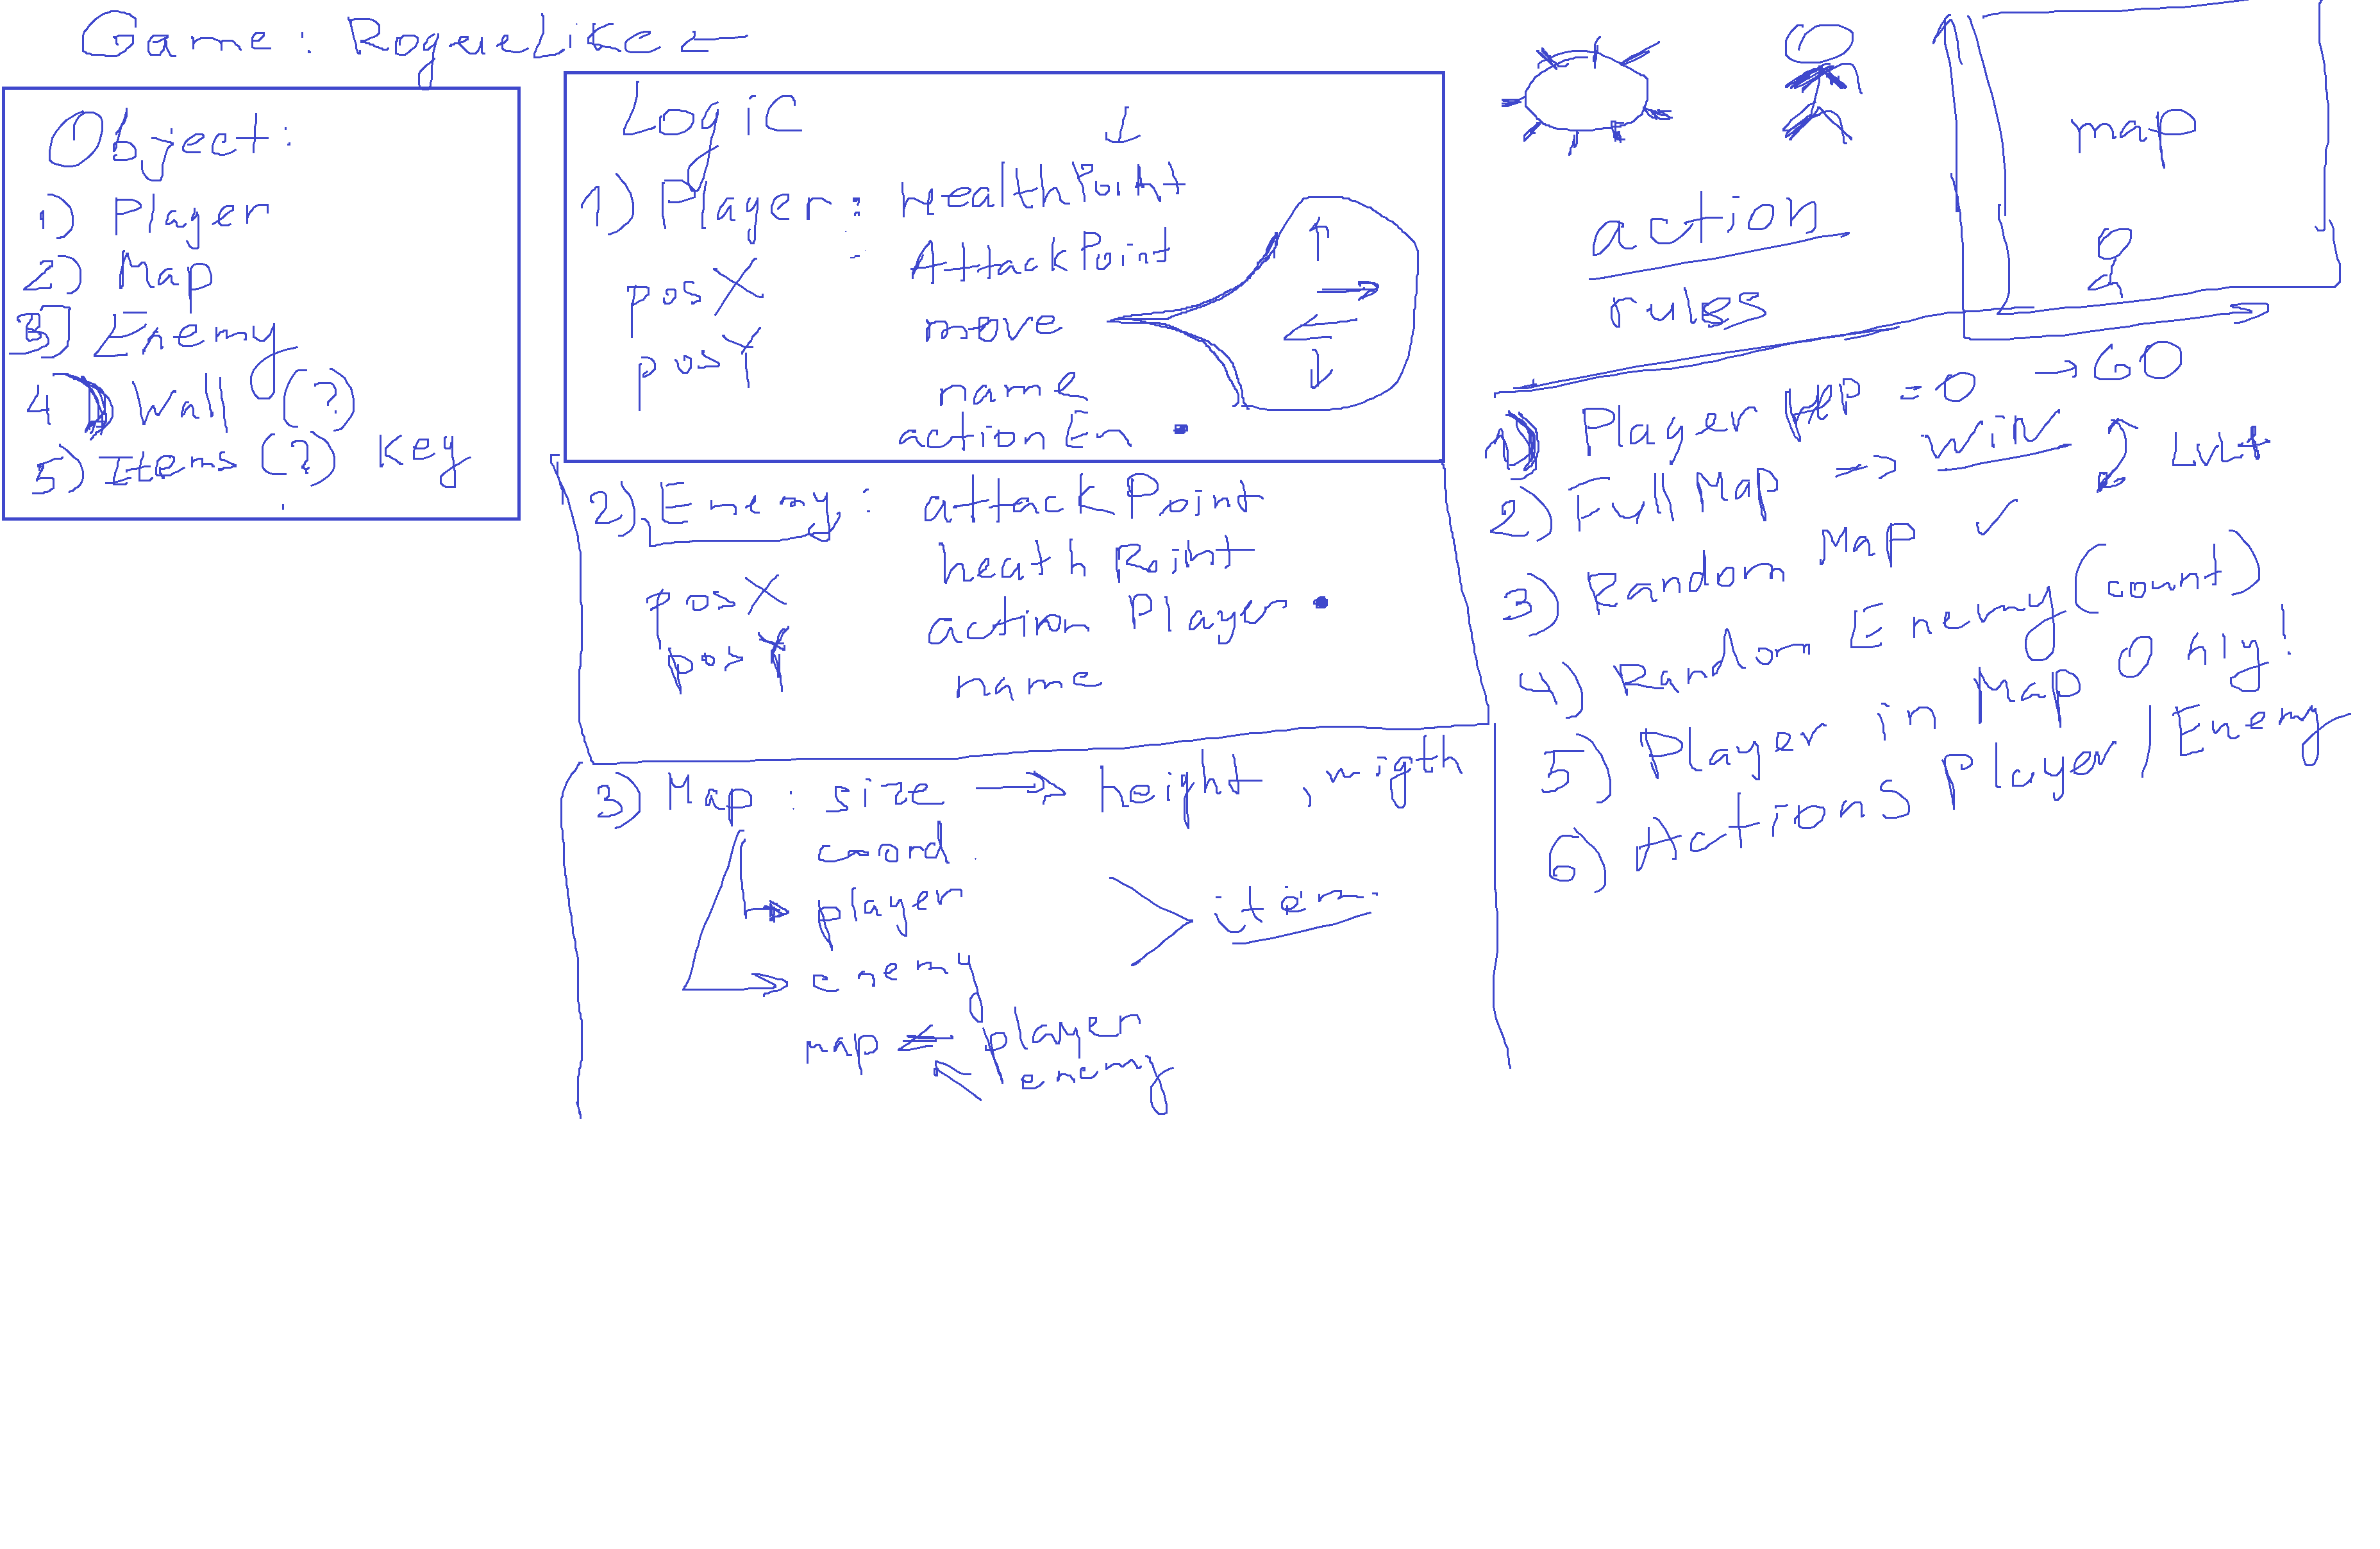 Game: RogueLike
Object:
1) Player
2) Map
3) Enemy
4) Wall (?)
5) Items (?) Key
Logic
1) Player: HealthPoint
AttackPoint
posX
move
posY
name
actionEn
2) Enemy: attackPoint
heathPoint
posX
action Player
posY
name
3) Map: size → height, wigth
coord
player
item
enemy
map ⇐ player
enemy
map
action
rules
1) Player HP = 0 → GO
2) Full Map => WIN
Lvl+
3) Random Map ✓
4) Random Enemy (count)
5) Player in Map Only!
6) Actions Player/Enemy